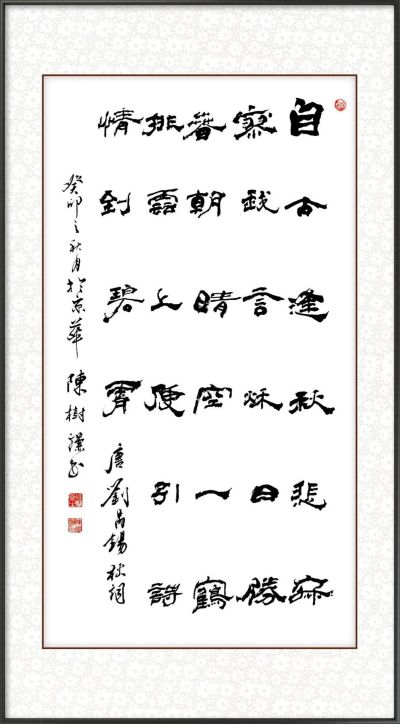 自古逢秋悲寂
寥我言秋日勝
春朝晴空一鶴
排雲上便引詩
情到碧霄
唐劉禹錫秋詞
癸卯之秋月於京華 陳樹